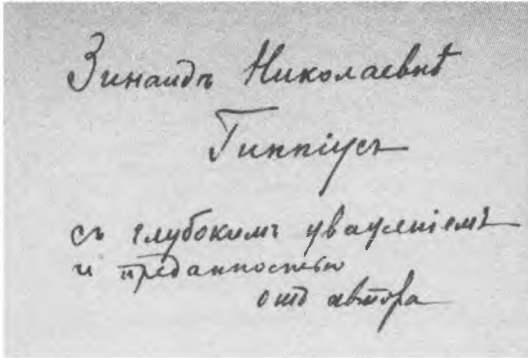 Зинаидѣ Николаевнѣ
Гиппіусъ
съ глубокимъ уваженіемъ
и преданностью
отъ автора